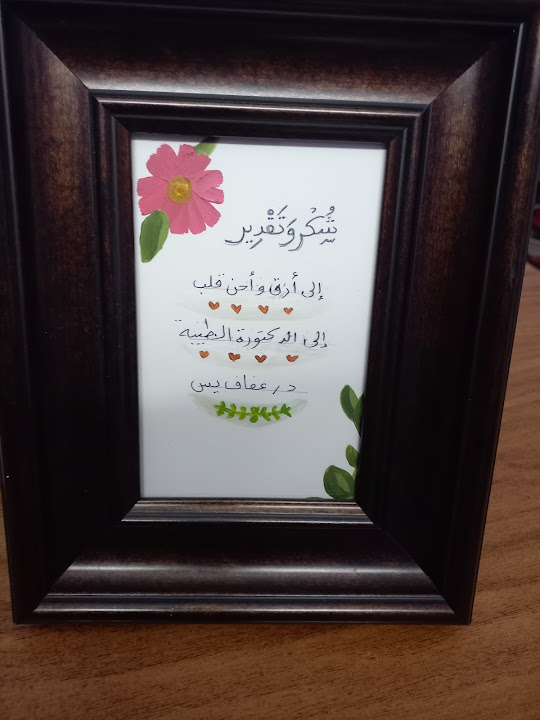 شُكْر وَتَقْدِير
إلى أرق وأحن قلب
إلى الدكتورة الطيبة
د/ عفاف يس